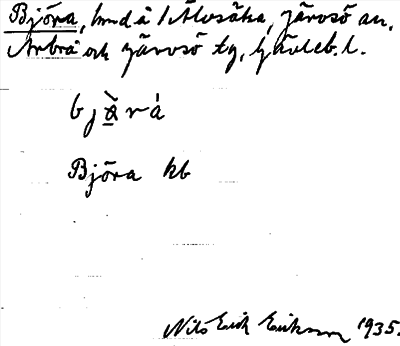 Björa, hmd å 1 Älvsäka, Järvsö sn,
Arbrå och Järvsö tg, Gävleb. l.
Björa kb
Nils Erik Eriksson 1935.